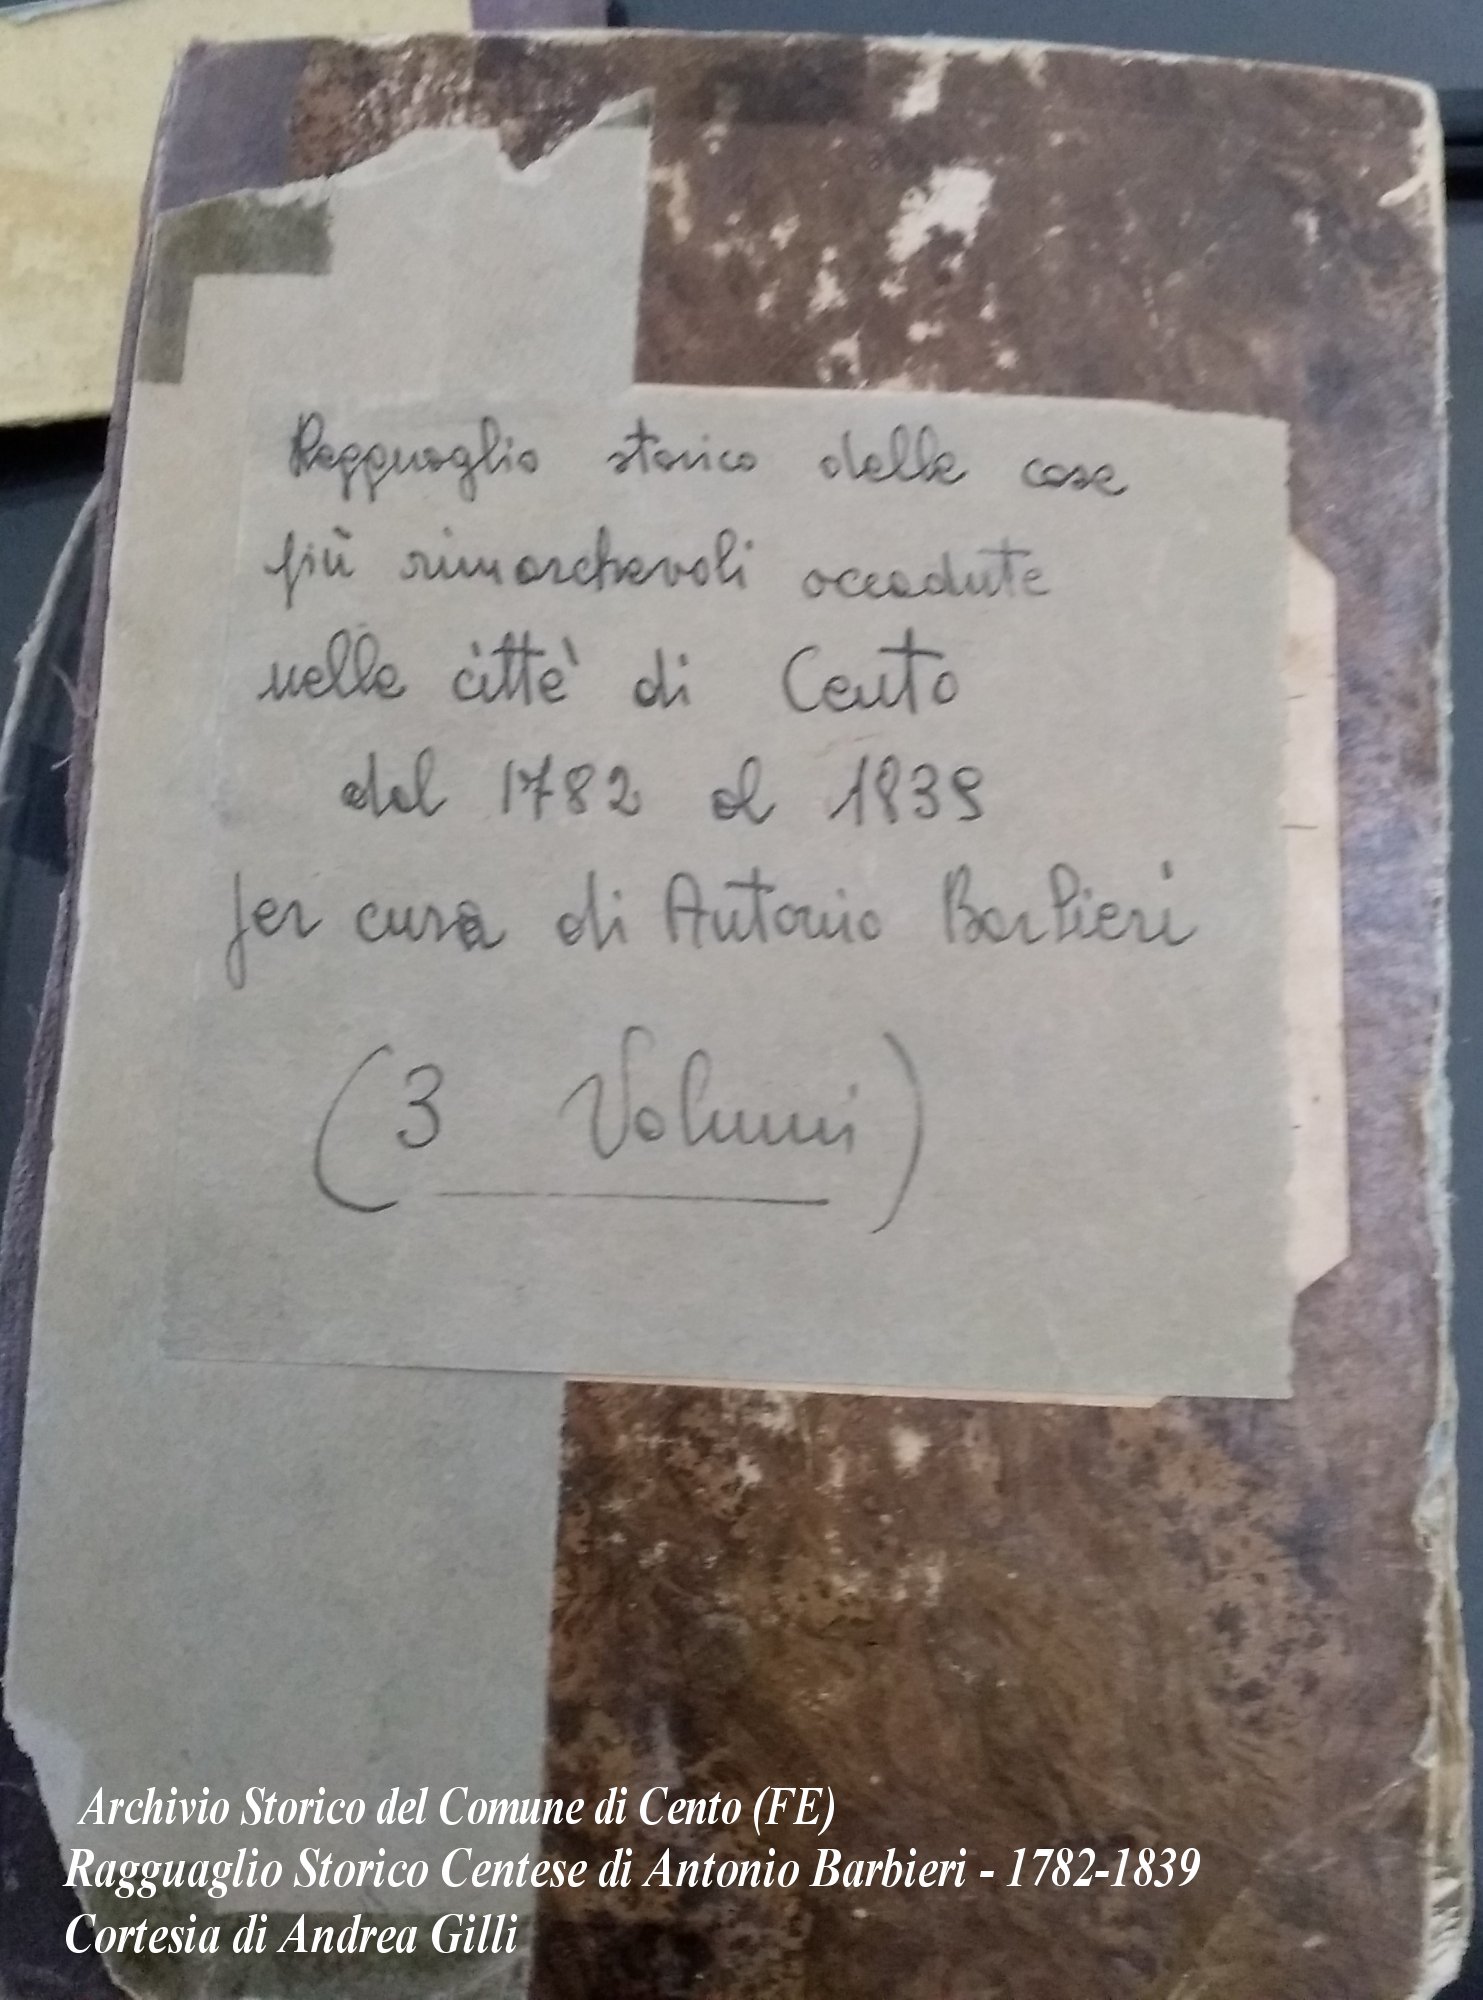 Ragguaglio storico delle cose
più rimarchevoli accadute
nella città di Cento
dal 1782 al 1839
per cura di Antonio Barbieri
(3 Volumi)
Archivio Storico del Comune di Cento (FE)
Ragguaglio Storico Centese di Antonio Barbieri - 1782-1839
Cortesia di Andrea Gilli